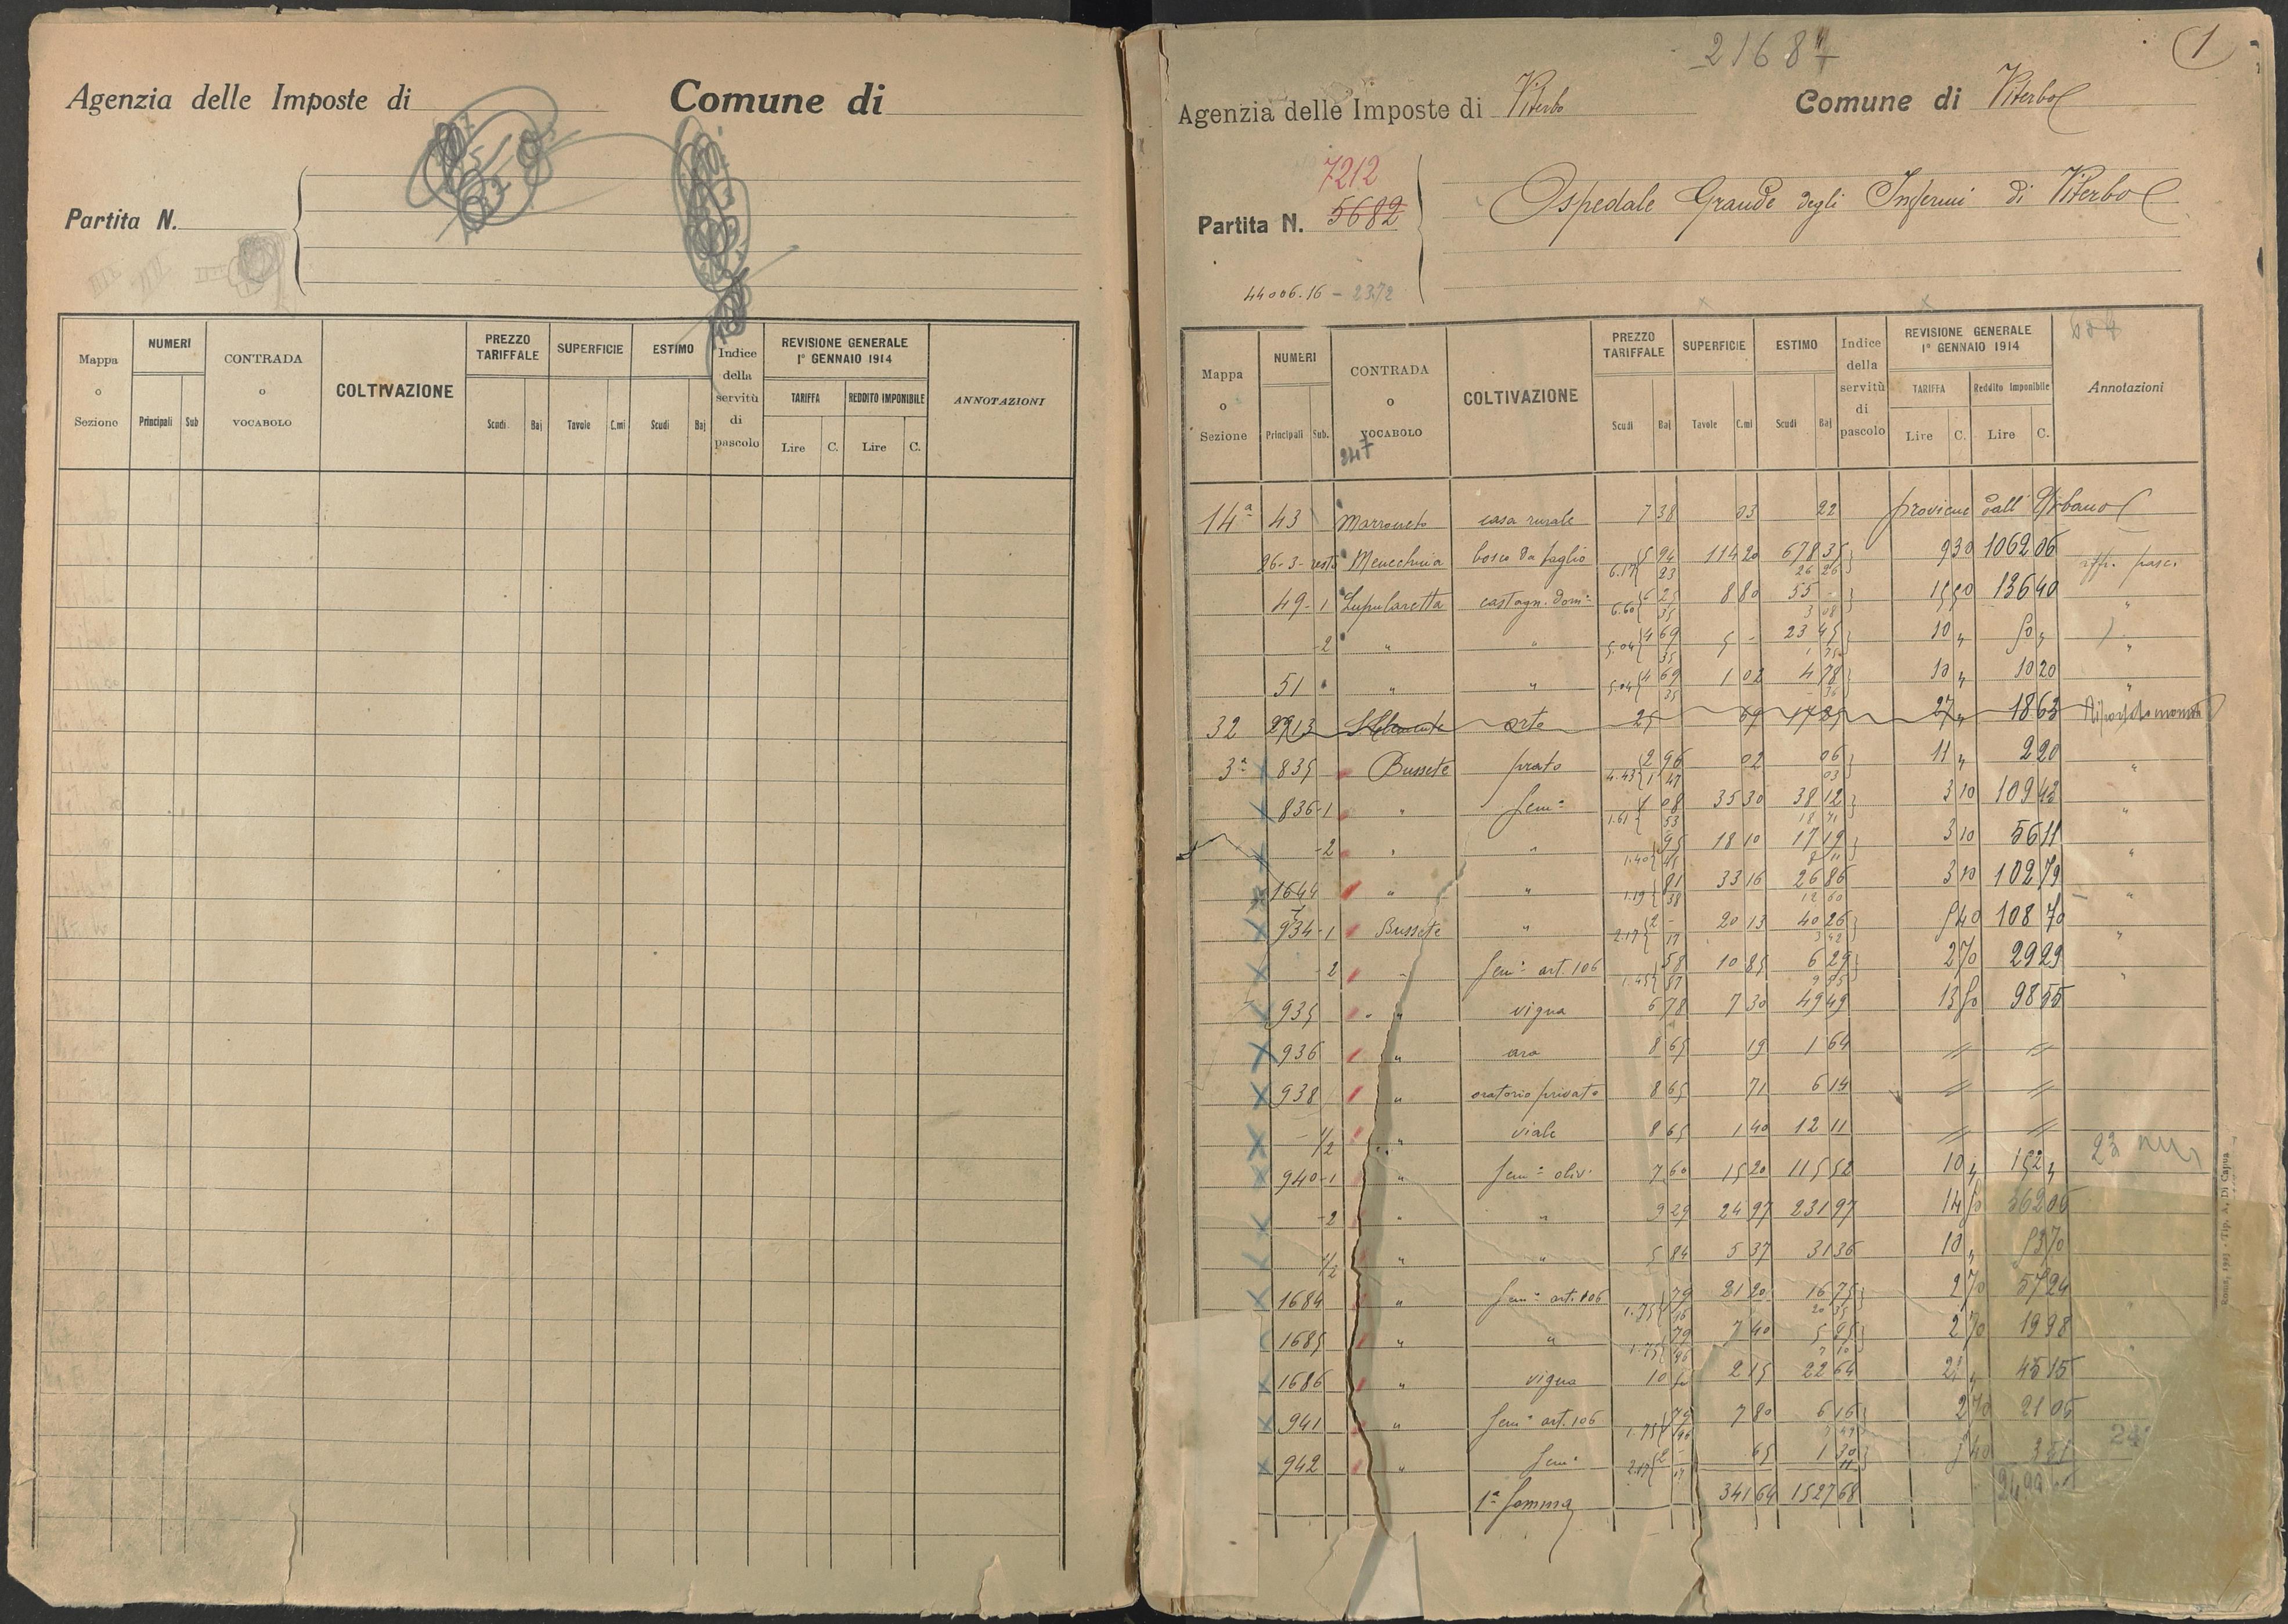 Agenzia delle Imposte di
Comune di
Partita N.
Mappa o Sezione
NUMERI
Principali Sub
CONTRADA o VOCABOLO
COLTIVAZIONE
PREZZO TARIFFALE
Scudi Baj
SUPERFICIE
Tavole C.mi
ESTIMO
Scudi Baj
Indice della servitù di pascolo
REVISIONE GENERALE
1° GENNAIO 1914
TARIFFA REDDITO IMPONIBILE
Lire C. Lire C.
ANNOTAZIONI
21687
1
Agenzia delle Imposte di Viterbo
Comune di Viterbo
7212
Partita N. 5682
Ospedale Grande degli Infermi di Viterbo
44006.16 - 2372
Mappa o Sezione
NUMERI
Principali Sub.
CONTRADA o VOCABOLO
247
COLTIVAZIONE
PREZZO TARIFFALE
Scudi Baj
SUPERFICIE
Tavole C.mi
ESTIMO
Scudi Baj
Indice della servitù di pascolo
REVISIONE GENERALE
1° GENNAIO 1914
TARIFFA Reddito Imponibile
Lire C. Lire C.
Annotazioni
14ª 43 Marroneto casa rurale 7 38 03 22 proviene dall' Urbano
26-3-resto Menecchia bosco da taglio 6.17 5 94 23 114 20 678 35 26 26 9 30 1062 06 aff. pasci
49-1 Lupularetta castagn. dom: 6.60 6 25 35 8 80 55 - 3 08 15 50 136 40 "
-2 " " 5.04 4 69 35 5 - 23 45 1 75 10 " 50 " "
51 " " 5.04 4 69 35 1 02 4 78 36 10 " 10 20 "
32 2913 S. Clemente orto 25 69 17 25 27 " 18 63
3ª 835 Bussete prato 4.43 2 96 1 47 02 06 03 11 " 2 20 "
836-1 " Sem: 1.61 1 08 53 35 30 38 12 18 71 3 10 109 43 "
-2 " " 1.40 95 45 18 10 17 19 8 11 3 10 56 11 "
1644 " " 1.19 81 38 33 16 26 86 12 60 3 10 102 79 "
934-1 Bussete " 2.17 2 - 17 20 13 40 26 3 42 5 40 108 70 "
-2 " Sem: art. 106 1.45 58 87 10 85 6 29 9 35 2 70 29 29 "
935 " vigna 6 78 7 30 49 49 13 50 98 55
936 " ara 8 65 19 1 64
938 " oratorio privato 8 65 71 6 14
- 1/2 " viale 8 65 1 40 12 11
23
940-1 " Sem: oliv: 7 60 15 20 115 52 10 " 152 "
-2 " " 9 29 24 97 231 97 14 50 362 06
1/2 " " 5 84 5 37 31 36 10 " 53 70
1684 " Sem: art. 106 1.75 79 96 21 20 16 75 20 35 2 70 57 24 "
1685 " " 1.75 79 96 7 40 5 85 7 10 2 70 19 98 "
1686 " vigna 10 50 2 15 22 64 21 " 45 15
941 " Sem: art. 106 1.75 79 96 7 80 6 16 7 49 2 70 21 06
24
942 " Sem: 2.17 2 - 17 65 1 30 11 5 40 3 51
1ª Somma 341 64 1527 68
Roma, 1923 - Tip. A. Di Capua